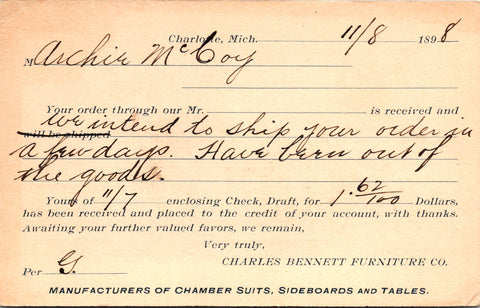 Charlotte, Mich. 11/8 1898
M Archie McCoy
Your order through our Mr. is received and
will be shipped we intend to ship your order in
a few days. Have been out of
the goods.
Yours of 11/7 enclosing Check, Draft, for 1.62/100 Dollars,
has been received and placed to the credit of your account, with thanks.
Awaiting your further valued favors, we remain,
Very truly,
CHARLES BENNETT FURNITURE CO.
Per G.
MANUFACTURERS OF CHAMBER SUITS, SIDEBOARDS AND TABLES.